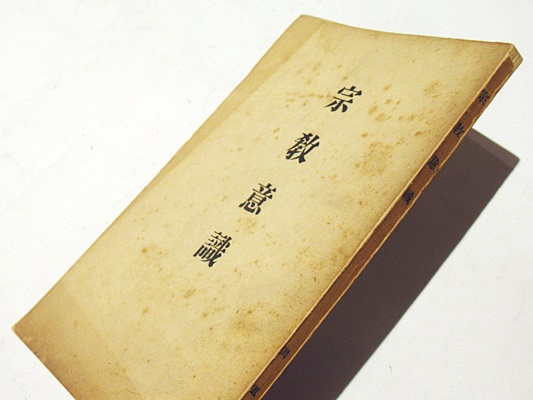 宗教意識
宗教意識